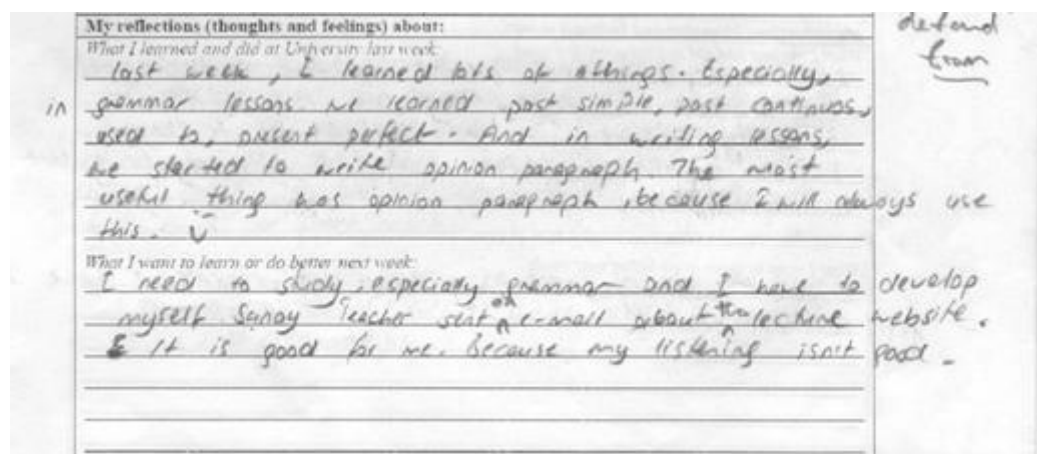 My reflections (thoughts and feelings) about:
What I learned and did at University last week:
last week, I learned lots of things. Especially,
in grammar lessons we learned past simple, past continuos,
used to, present perfect. And in writing lessons,
we started to write opinion paragraph. The most
useful thing was opinion paragraph, because I will always use
this.
What I want to learn or do better next week:
I need to study, especially grammar and I have to develop
myself. Sunay Teacher sent an e-mail about the lecture website.
It is good for me. Because my listening isn't good.
from